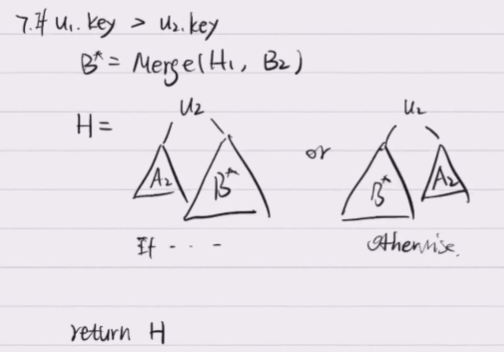 7. If u₁.key > u₂.key
B* = Merge(H₁, B₂)
H = u₂ A₂ B* or u₂ B* A₂
If - - - Otherwise.
return H